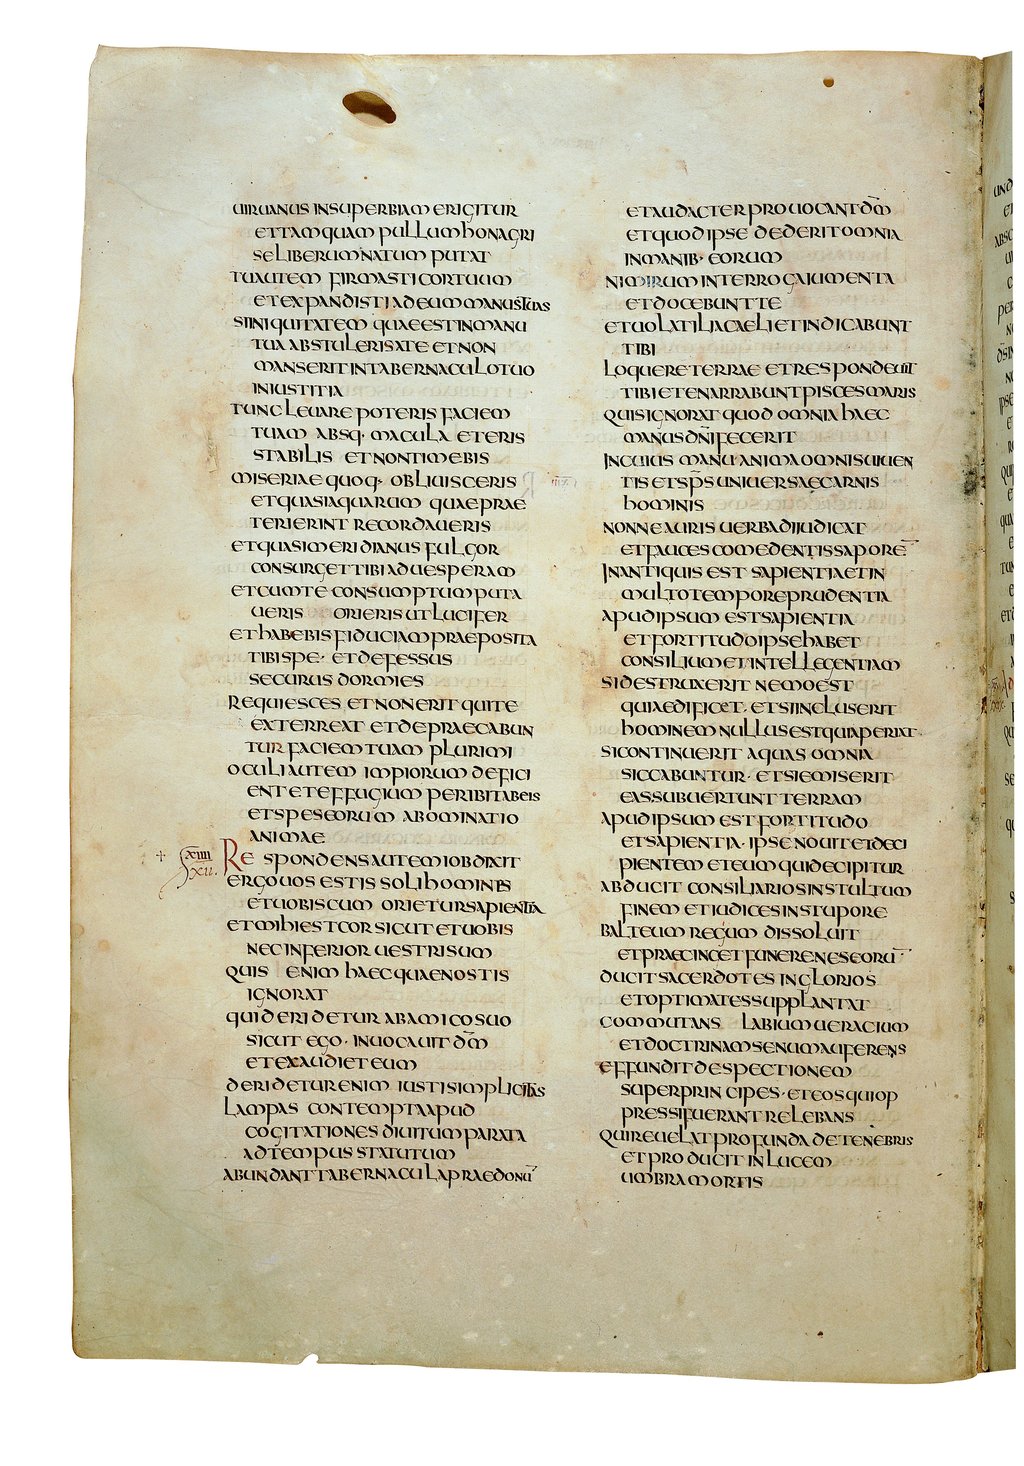 UIRUANUS INSUPERBIAM ERIGITUR
ET TAMQUAM PULLUM HONAGRI
SE LIBERUM NATUM PUTAT
TU AUTEM FIRMASTI COR TUUM
ET EXPANDISTI AD EUM MANUS TUAS
SI INIQUITATEM QUAE EST IN MANU
TUA ABSTULERIS A TE ET NON
MANSERIT IN TABERNACULO TUO
INIUSTITIA
TUNC LEUARE POTERIS FACIEM
TUAM ABSQ· MACULA ET ERIS
STABILIS ET NON TIMEBIS
MISERIAE QUOQ· OBLIUISCERIS
ET QUASI AQUARUM QUAE PRAE
TERIERINT RECORDAUERIS
ET QUASI MERIDIANUS FULGOR
CONSURGET TIBI AD UESPERAM
ET CUM TE CONSUMPTUM PUTA
UERIS ORIERIS UT LUCIFER
ET HABEBIS FIDUCIAM PRAEPOSITA
TIBI SPE· ET DEFESSUS
SECURUS DORMIES
REQUIESCES ET NON ERIT QUI TE
EXTERREAT ET DEPRAECABUN
TUR FACIEM TUAM PLURIMI
OCULI AUTEM IMPIORUM DEFICI
ENT ET EFFUGIUM PERIBIT AB EIS
ET SPES EORUM ABOMINATIO
ANIMAE
XIIII
XII.
RESPONDENS AUTEM IOB DIXIT
ERGO UOS ESTIS SOLI HOMINES
ET UOBISCUM ORIETUR SAPIENTIA
ET MIHI EST COR SICUT ET UOBIS
NEC INFERIOR UESTRI SUM
QUIS ENIM HAEC QUAE NOSTIS
IGNORAT
QUI DERIDETUR AB AMICO SUO
SICUT EGO· INUOCAUIT DM̄
ET EXAUDIET EUM
DERIDETUR ENIM IUSTI SIMPLICITAS
LAMPAS CONTEMPTA APUD
COGITATIONES DIUITUM PARATA
AD TEMPUS STATUTUM
ABUNDANT TABERNACULA PRAEDONŪ
ET AUDACTER PROUOCANT DM̄
ET QUOD IPSE DEDERIT OMNIA
IN MANIB· EORUM
NIMIRUM INTERROGA IUMENTA
ET DOCEBUNT TE
ET UOLATILIA CAELI ET INDICABUNT
TIBI
LOQUERE TERRAE ET RESPONDEBIT
TIBI ET ENARRABUNT PISCES MARIS
QUIS IGNORAT QUOD OMNIA HAEC
MANUS DN̄I FECERIT
IN CUIUS MANU ANIMA OMNIS UIUEN
TIS ET SP̄S UNIUERSAE CARNIS
HOMINIS
NONNE AURIS UERBA DIIUDICAT
ET FAUCES COMEDENTIS SAPORĒ
IN ANTIQUIS EST SAPIENTIA ET IN
MULTO TEMPORE PRUDENTIA
APUD IPSUM EST SAPIENTIA
ET FORTITUDO IPSE HABET
CONSILIUM ET INTELLEGENTIAM
SI DESTRUXERIT NEMO EST
QUI AEDIFICET· ET SI INCLUSERIT
HOMINEM NULLUS EST QUI APERIAT·
SI CONTINUERIT AQUAS OMNIA
SICCABUNTUR· ET SI EMISERIT
EAS SUBUERTUNT TERRAM
APUD IPSUM EST FORTITUDO
ET SAPIENTIA· IPSE NOUIT ET DECI
PIENTEM ET EUM QUI DECIPITUR
ABDUCIT CONSILIARIOS IN STULTUM
FINEM ET IUDICES IN STUPORE
BALTEUM REGUM DISSOLUIT
ET PRAECINGET FUNE RENES EORŪ·
DUCIT SACERDOTES INGLORIOS
ET OPTIMATES SUPPLANTAT
COMMUTANS LABIUM UERACIUM
ET DOCTRINAM SENUM AUFERENS
EFFUNDIT DESPECTIONEM
SUPER PRINCIPES· ET EOS QUI OP
PRESSI FUERANT RELEBANS
QUI REUELAT PROFUNDA DE TENEBRIS
ET PRODUCIT IN LUCEM
UMBRA MORTIS